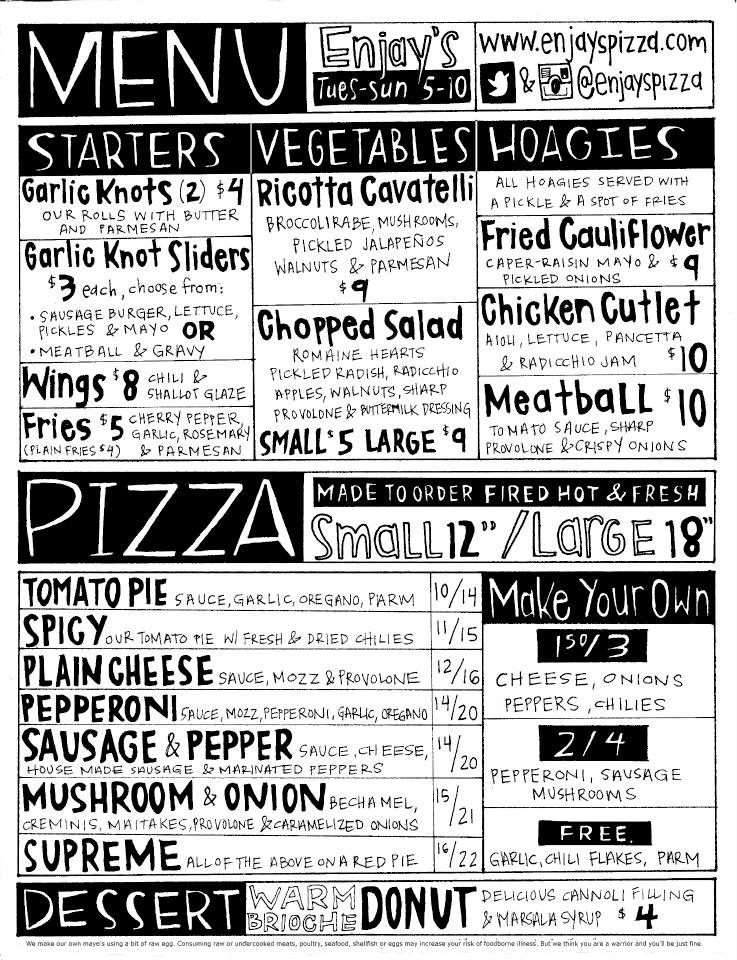 MENU
Enjay's
Tues-Sun 5-10
www.enjayspizza.com
& @enjayspizza
STARTERS
Garlic Knots (2) $4
OUR ROLLS WITH BUTTER
AND PARMESAN
Garlic Knot Sliders
$3 each, choose from:
• SAUSAGE BURGER, LETTUCE,
PICKLES & MAYO OR
• MEATBALL & GRAVY
Wings $8 CHILI &
SHALLOT GLAZE
Fries $5 CHERRY PEPPER,
GARLIC, ROSEMARY
(PLAIN FRIES $4) & PARMESAN
VEGETABLES
Ricotta Cavatelli
BROCCOLI RABE, MUSHROOMS,
PICKLED JALAPEÑOS
WALNUTS & PARMESAN
$9
Chopped Salad
ROMAINE HEARTS
PICKLED RADISH, RADICCHIO
APPLES, WALNUTS, SHARP
PROVOLONE & BUTTERMILK DRESSING
SMALL $5 LARGE $9
HOAGIES
ALL HOAGIES SERVED WITH
A PICKLE & A SPOT OF FRIES
Fried Cauliflower
CAPER-RAISIN MAYO & $9
PICKLED ONIONS
Chicken Cutlet
AIOLI, LETTUCE, PANCETTA
& RADICCHIO JAM $10
Meatball $10
TOMATO SAUCE, SHARP
PROVOLONE & CRISPY ONIONS
PIZZA
MADE TO ORDER FIRED HOT & FRESH
Small 12" / Large 18"
TOMATO PIE SAUCE, GARLIC, OREGANO, PARM 10/14
SPICY OUR TOMATO PIE W/ FRESH & DRIED CHILIES 11/15
PLAIN CHEESE SAUCE, MOZZ & PROVOLONE 12/16
PEPPERONI SAUCE, MOZZ, PEPPERONI, GARLIC, OREGANO 14/20
SAUSAGE & PEPPER SAUCE, CHEESE, 14/20
HOUSE MADE SAUSAGE & MARINATED PEPPERS
MUSHROOM & ONION BECHAMEL, 15/21
CREMINIS, MAITAKES, PROVOLONE & CARAMELIZED ONIONS
SUPREME ALL OF THE ABOVE ON A RED PIE 16/22
Make Your Own
1 50/3
CHEESE, ONIONS
PEPPERS, CHILIES
2/4
PEPPERONI, SAUSAGE
MUSHROOMS
FREE.
GARLIC, CHILI FLAKES, PARM
DESSERT
WARM
BRIOCHE
DONUT
DELICIOUS CANNOLI FILLING
& MARSALA SYRUP $4
We make our own mayo's using a bit of raw egg. Consuming raw or undercooked meats, poultry, seafood, shellfish or eggs may increase your risk of foodborne illness. But we think you are a warrior and you'll be just fine.